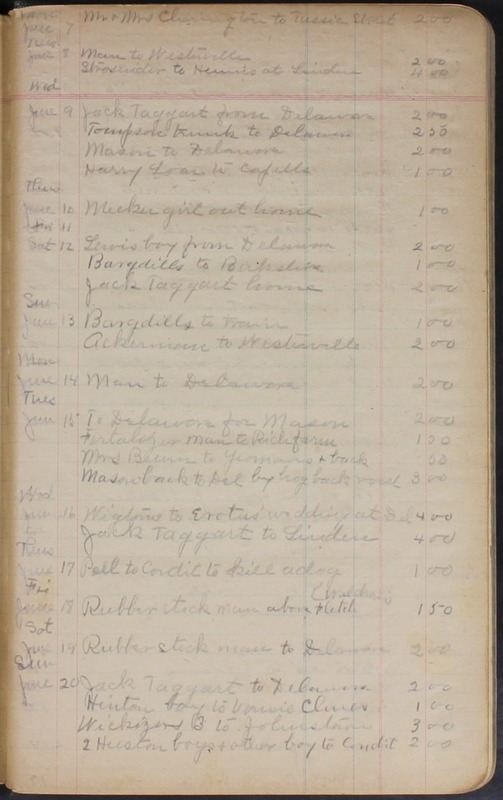 June 7 Mr & Mrs to Tussic Street 2 00
Tues
June 8 Man to Westerville 2 00
Strosnider to Hennis at Linden 4 00
Wed
June 9 Jack Taggart from Delaware 2 00
Tompson trunk to Delaware 2 50
Mason to Delaware 2 00
Harry Loar to Cafells 1 00
Thurs
June 10 Meeker girl out home 1 00
Fri 11
Sat 12 Lewis boy from Delaware 2 00
Bargdills to Berkshire 1 00
Jack Taggart home 2 00
Sun
June 13 Bargdills to train 1 00
Ackerman to Westerville 2 00
Mon
June 14 Man to Delaware 2 00
Tues
June 15 To Delaware for Mason 2 00
man to Rich farm 1 50
Mrs to Yeomans & back
Mason back to Del by hog back road 3 00
Wed
June 16 to wedding at Del 4 00
Jack Taggart to Linden 4 00
Thurs
June 17 Pell to Condit to kill a dog 1 00
Fri
June 18 Rubber stock man above 1 50
Sat
June 19 Rubber stock man to Delaware 2 00
Sun
June 20 Jack Taggart to Delaware 2 00
Hinton boy to Clines 1 00
Wickizers 3 to Johnstown 3 00
2 Huston boys & other boy to Condit 2 00